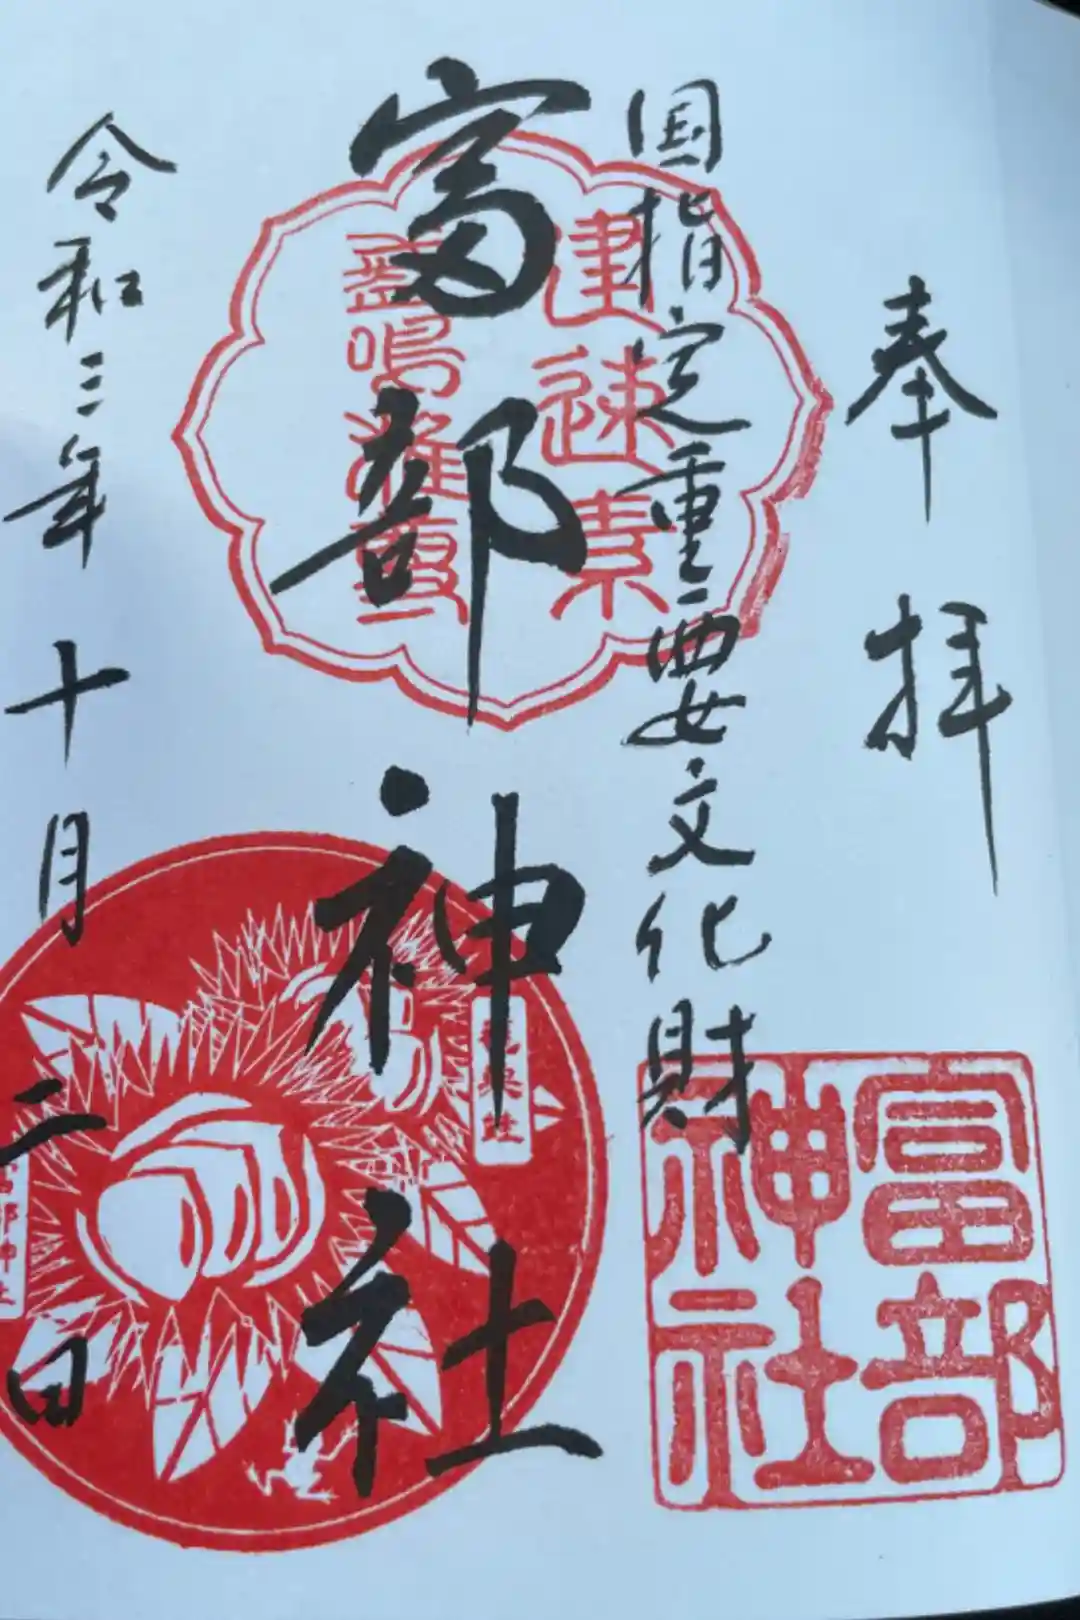 奉拝
国指定重要文化財
富部神社
令和三年十月二日
建速素
盞嗚尊
富部
神社